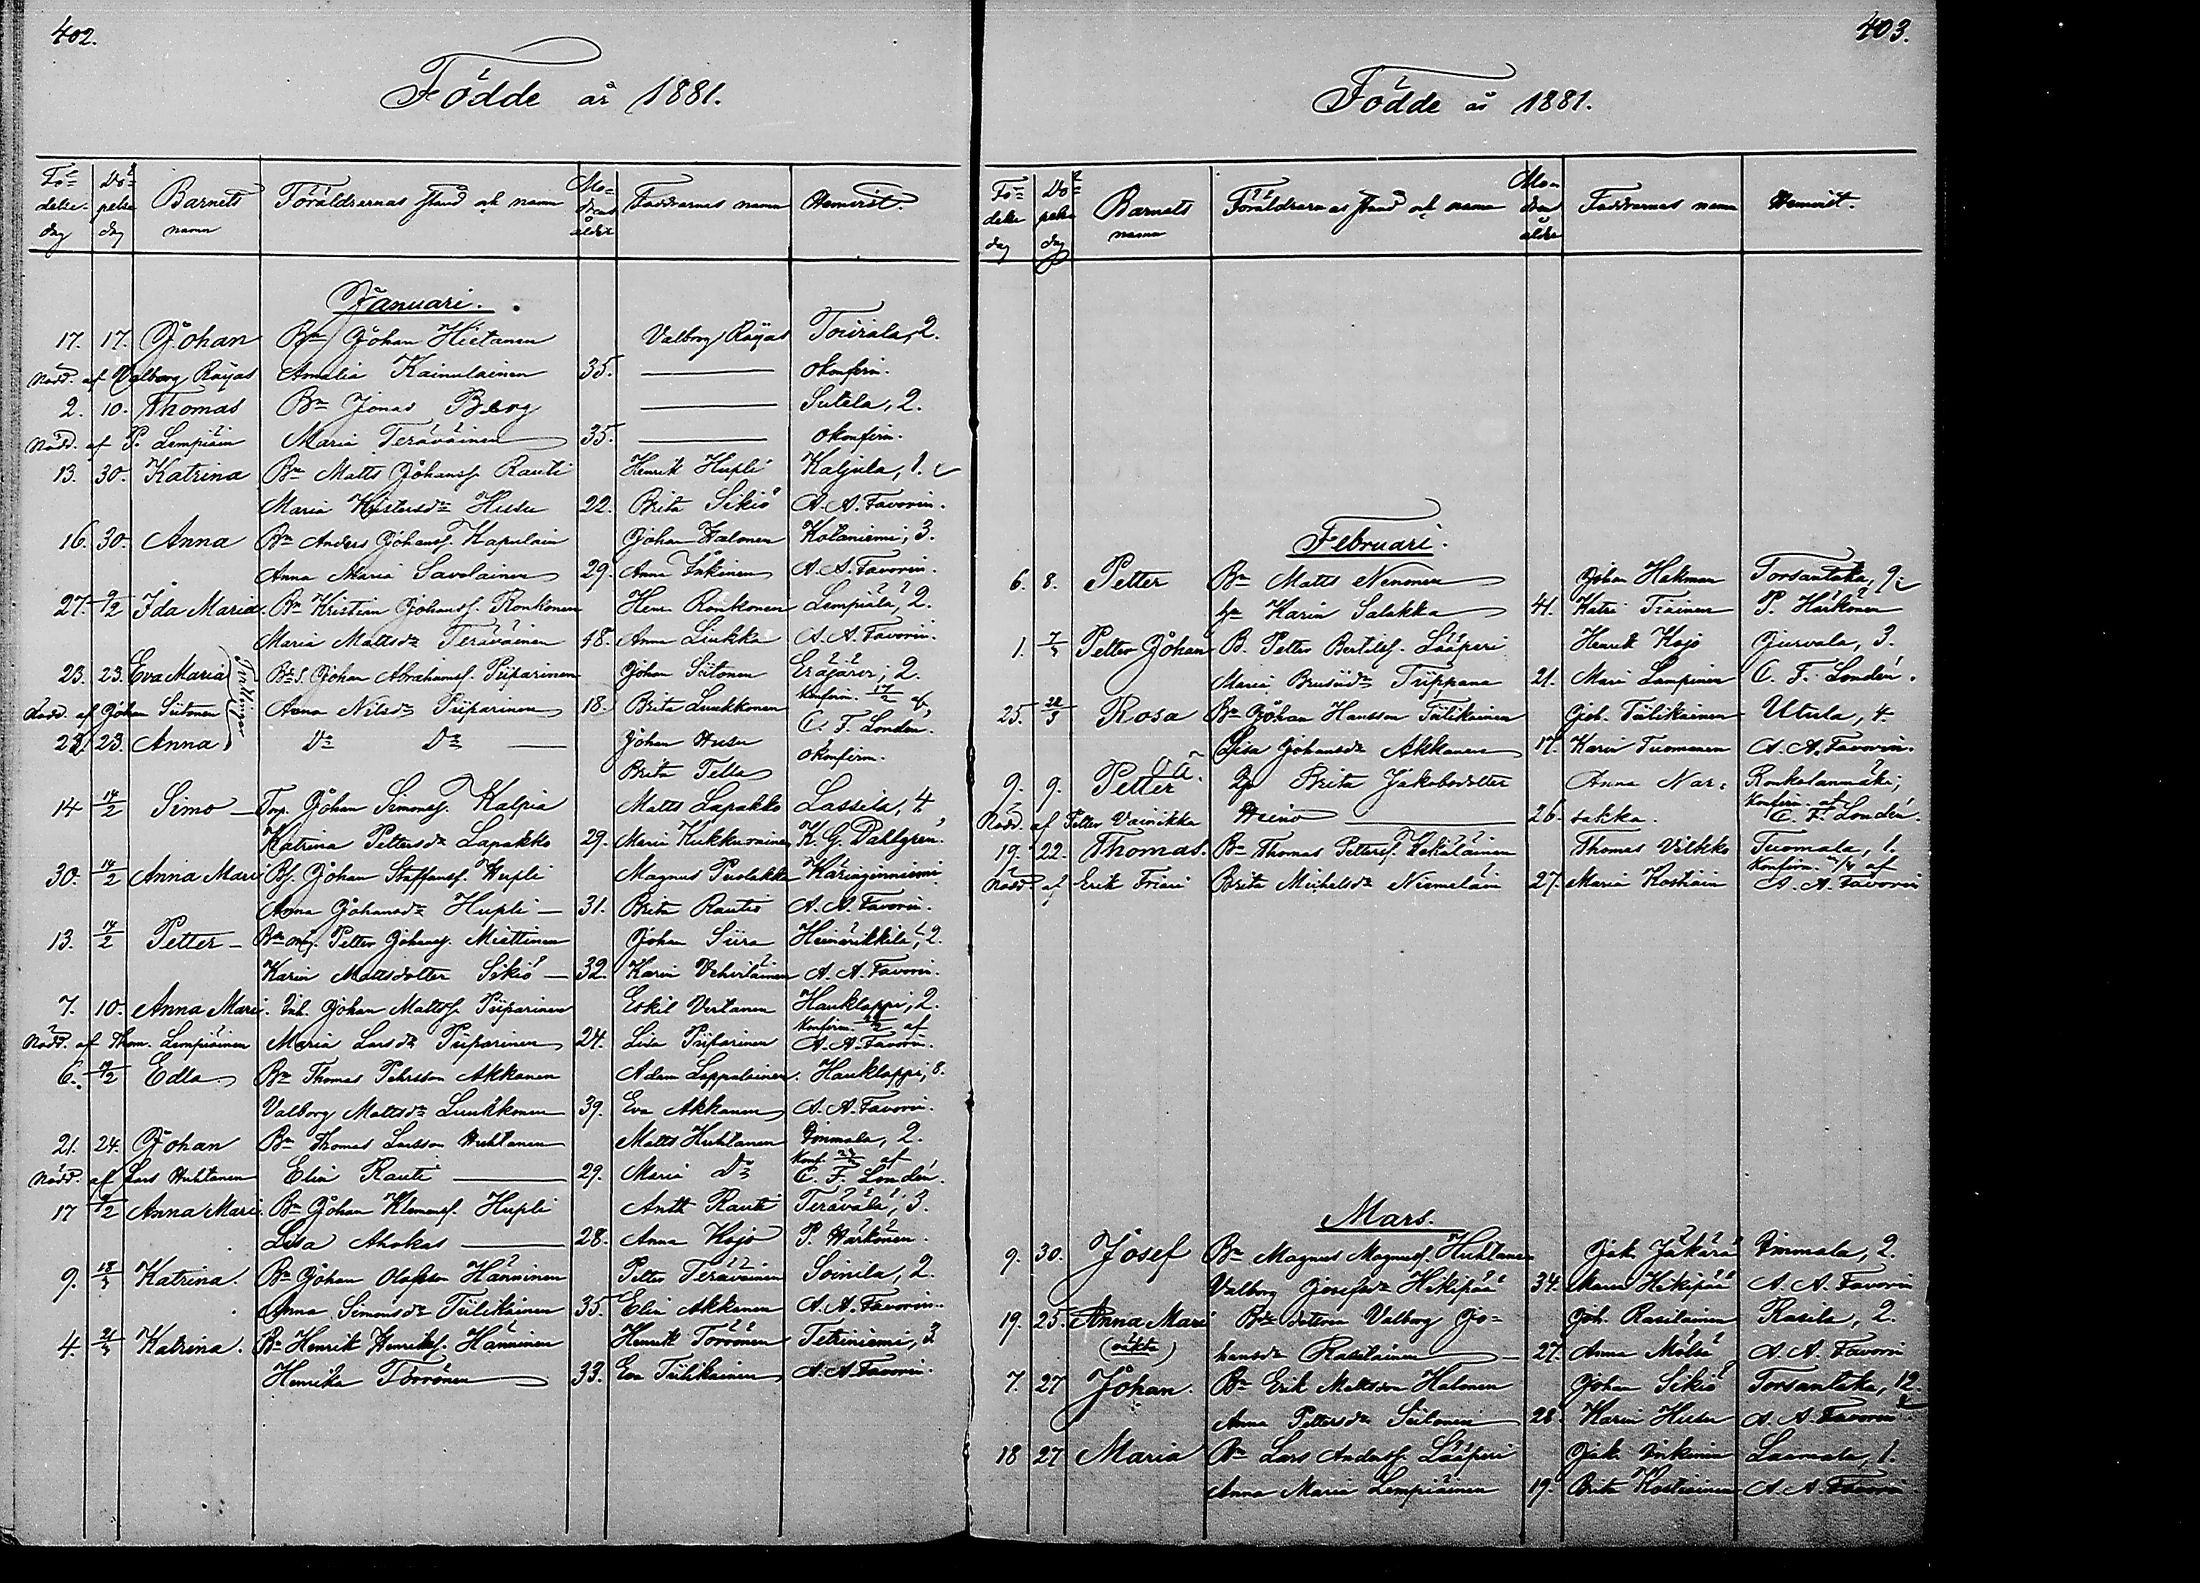 402.
Födde år 1881.
Födelse-dag Döpelse dag Barnets namn Föräldrarnas stånd och namn Modrens ålder Faddrarnas namn Hemvist.
Januari.
17. 17. Johan Bn Johan Hietanen Valborg Räyas Tourala, 2.
Nödd. af Valborg Räyas Amalia Kainulainen 35. okonfirm.
2. 10. Thomas Bn Jonas Berg Sutela, 2.
Nödd. af P. Lempiäin Maria Teräväinen 35. okonfirm.
13. 30. Katrina Bn Matts Johansf. Rauti Henrik Hupli Kaljula, 1.
Maria Kristersdr Husu 22. Brita Sikiö A. A. Favorin.
16. 30. Anna Bn Anders Johansf. Kapulain Johan Halonen Kolaniemi, 3.
Anna Maria Savolainen 29. Anna Inkinen A. A. Favorin.
27. 9/2 Ida Maria. Bn Kristian Johansf. Ronkonen Henr. Ronkonen Lempiälä, 2.
Maria Mattsdr Teräväinen 18. Anna Liukka A. A. Favorin.
23. 23. Eva Maria Tvillingar Bns. Johan Abrahamsf. Piiparinen Johan Siitonen Eräjärvi, 2.
Nödd. af Johan Siitonen Anna Nilsdr Piiparinen 18. Brita Luukkonen Konfirm. 17/2 af
C. F. Londén.
23. 23. Anna Do Do Johan Husu okonfirm.
Brita Tella
14 14/2 Simo Torp. Johan Simonsf. Kalpia Matts Lapakko Lassila, 4
Katrina Pettersdr Lapakko 29. Maria Kukkurainen K. G. Dahlgrén.
30. 14/2 Anna Mari Bf. Johan Staffansf. Hupli Magnus Puolakka Käringinniemi
Anna Johansdr Hupli 31. Brita Rautio A. A. Favorin.
13. 14/2 Petter Bnmf. Petter Johansf. Miettinen Johan Siira Heinärikkilä, 2.
Karin Mattsdotter Sikiö 32. Karin Vehviläinen A. A. Favorin.
7. 10. Anna Mari. Inh. Johan Mattsf. Piiparinen Eskil Vertanen Hauklappi, 2.
Nödd. af Thom. Lempiäinen Maria Larsdr Piiparinen 24. Lisa Piiparinen Konfirm. af
A. A. Favorin.
6. Edla Bn Thomas Pehrsson Akkanen Adam Lappalainen. Hauklappi, 8.
Valborg Mattsdr Luukkonen 39. Eva Akkanen A. A. Favorin.
21. 24. Johan Bn Thomas Larsson Huhtanen Matts Huhtanen Immala, 2.
Nödd. af Lars Huhtanen Elin Rauti 29. Maria Do Konf. af
C. F. Londén.
17 Anna Mari. Bn Johan Klemensf. Hupli Antt Rauti Terävälä, 3.
Lisa Ahokas 28. Anna Kojo P. Härkönen.
9. 18/3 Katrina. Bn Johan Olofsson Hänninen Petter Teräväinen Soinila, 2.
Anna Simonsdr Tiilikainen 35. Elin Akkanen A. A. Favorin.
4. 21/3 Katrina. Bn Henrik Henriksf. Hänninen Henrik Torvonen Tetriniemi, 3
Henrika Törrönen 33. Eva Tiilikainen A. A. Favorin.
403.
Födde år 1881.
Födelse dag Döpelse dag Barnets namn Föräldrarnas stånd och namn Modrens ålder Faddrarnas namn Hemvist.
Februari.
6. 8. Petter Bn Matts Nenonen Johan Hakman Torsantaka, 9.
h. Karin Salakka 41. Katri Tiainen P. Härkönen
1. 7/3 Petter Johan B. Petter Bertilsf. Lääperi Henrik Kojo Purvala, 3.
Maria Brusiidr Trippana 21. Mari Lampinen C. F. Londén.
25. Rosa Bn Johan Hansson Tiilikainen Joh. Tiilikainen Utula, 4.
Lisa Johansdr Akkanen 17. Karin Tuomonen A. A. Favorin.
9. 9. Petter o ä. Brita Jakobsdotter Anna Nar- Ronkolanmäki;
Nödd. af Petter Vainikka Heino 26. sakka. Konfirm. af
C. F. Londén.
19. 22. Thomas. Bn Thomas Pettersf. Thomas Vilkko Tuomala, 1.
Nödd af Erik Friari Brita Michelsdr Niemeläin 27. Maria Kostiain Konfirm. af
A. A. Favorin
Mars.
9. 30. Josef Bn Magnus Magnusf. Huhtanen Jak. Jääkärä Immala, 2.
Valborg Josefsdr Hikipää 34. Maria Hikipää A. A. Favorin
19. 25. Anna Mari Bndottern Valborg Jo- Joh. Rasilainen Rasila, 2.
(oäkta) hansdr Rasilainen 27. Anna Mölsä A. A. Favorin
7. 27 Johan. Bn Erik Mattsson Halonen Johan Sikiö Torsantaka, 12.
Anna Pettersdr Siitonen 28. Karin Husu A. A. Favorin
18 27 Maria Bn Lars Andersf. Lääperi Jak. Inkinen Laamala, 1.
Anna Maria Lempiäinen 19. Brita Kostiainen A. A. Favorin